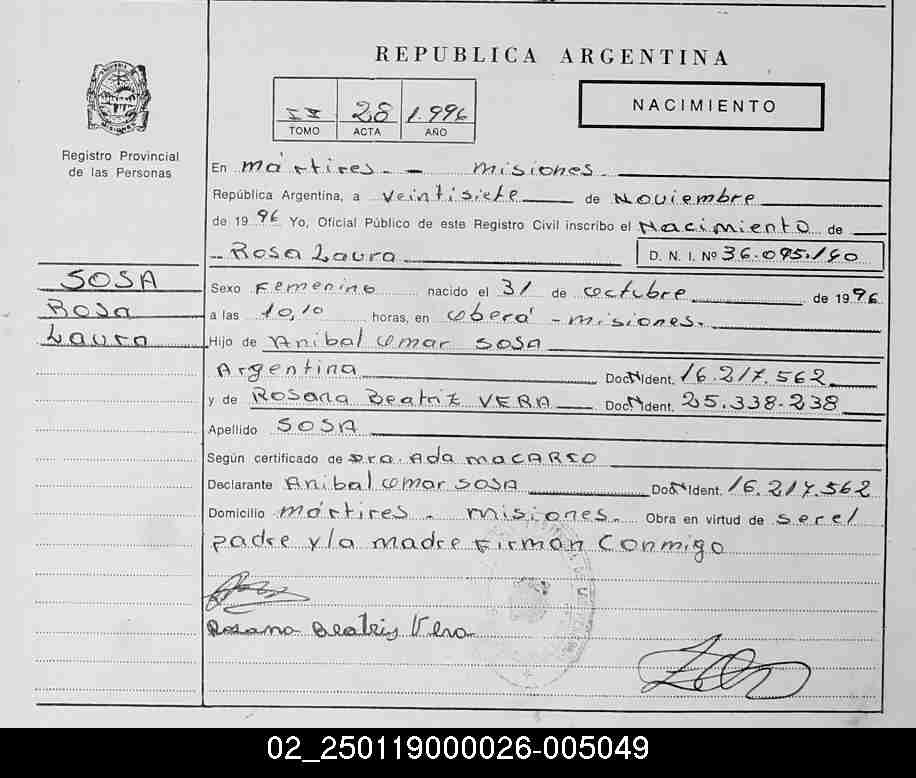 REPUBLICA ARGENTINA
II 28 1.996
TOMO ACTA AÑO
NACIMIENTO
Registro Provincial
de las Personas
SOSA
Rosa
Laura
En mártires - misiones.
República Argentina, a veintisiete de Noviembre
de 1996 Yo, Oficial Público de este Registro Civil inscribo el Nacimiento de
Rosa Laura D. N. I. Nº 36.095.140
Sexo Femenino nacido el 31 de octubre de 1996
a las 10,10 horas, en oberá - misiones.
Hijo de Anibal omar SOSA
Argentina Doc. Ident. 16.217.562
y de ROSANA Beatriz VERA Doc. Ident. 25.338.238
Apellido SOSA
Según certificado de Dra. Ada
Declarante Anibal omar SOSA Doc. Ident. 16.217.562
Domicilio mártires - misiones. Obra en virtud de ser el
padre y la madre Firman Conmigo
Rosana Beatriz Vera
02_250119000026-005049